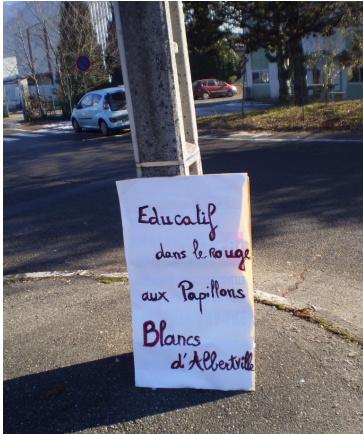 Educatif
dans le Rouge
aux Papillons
Blancs
d'Albertville